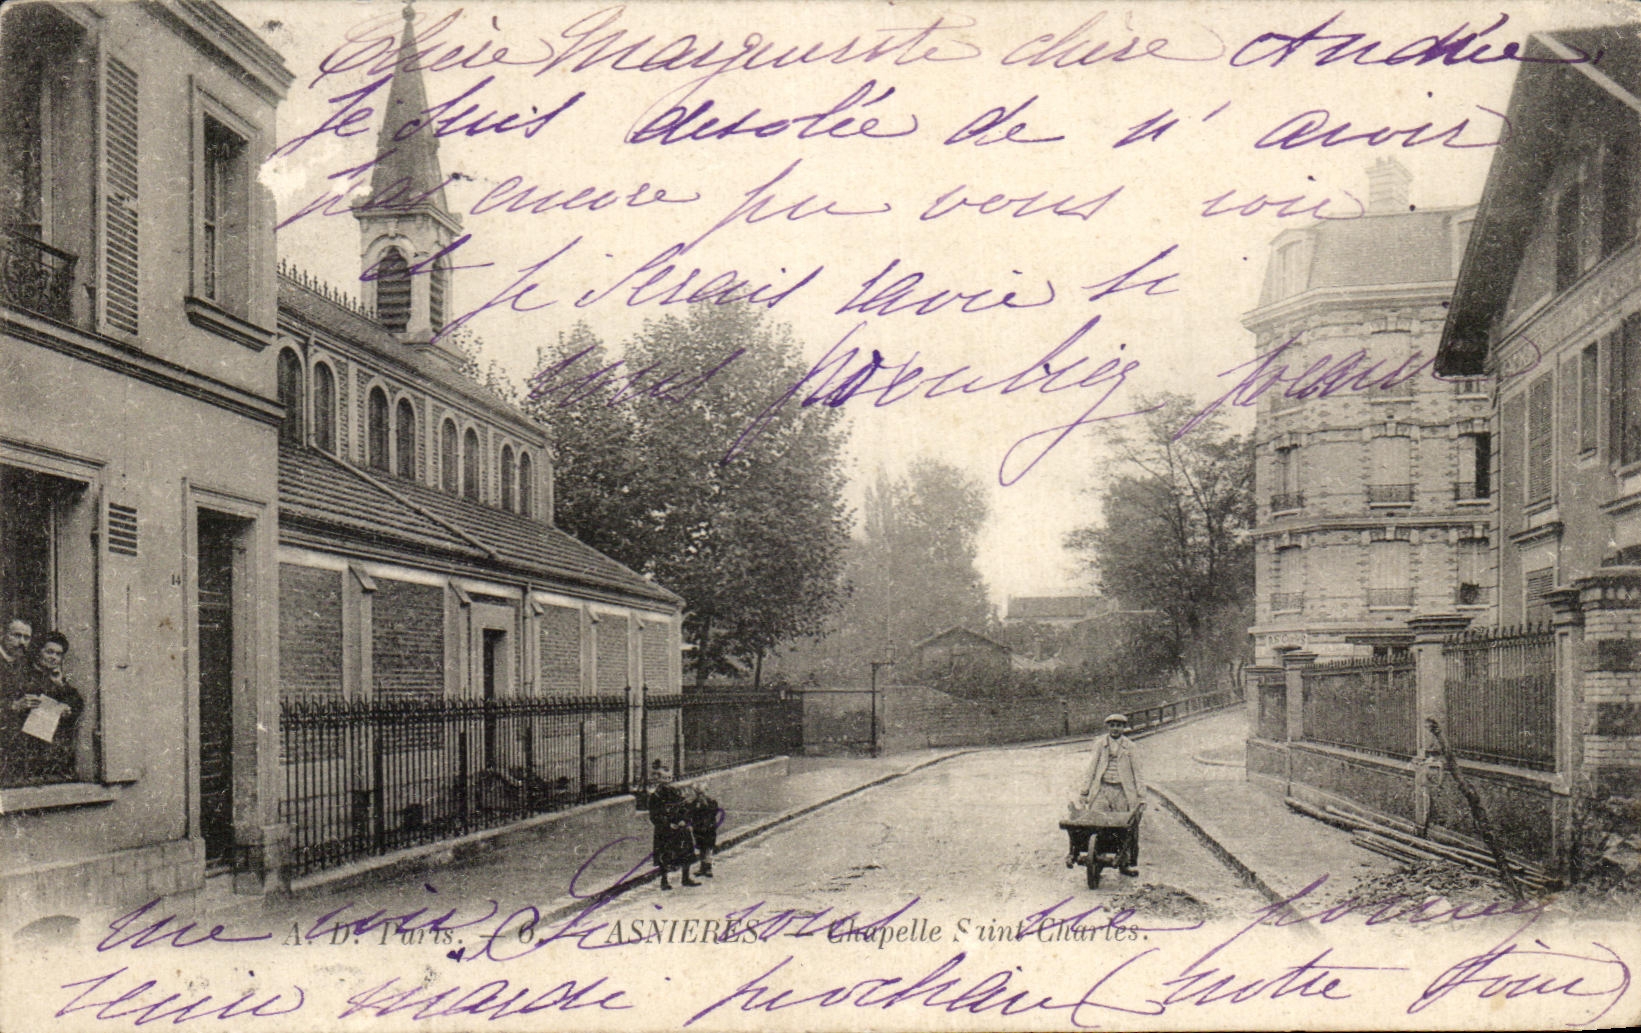 Chère Marguerite chère Andrée
Je suis desolée de n'avoir
pas encore pu vous voir
et je serais ravie si
vous pouviez
14
me voir (Si vous ne pouvez
A. D. Paris. — 6. ASNIERES. — Chapelle Saint-Charles.
venir mardi prochain (notre jour)